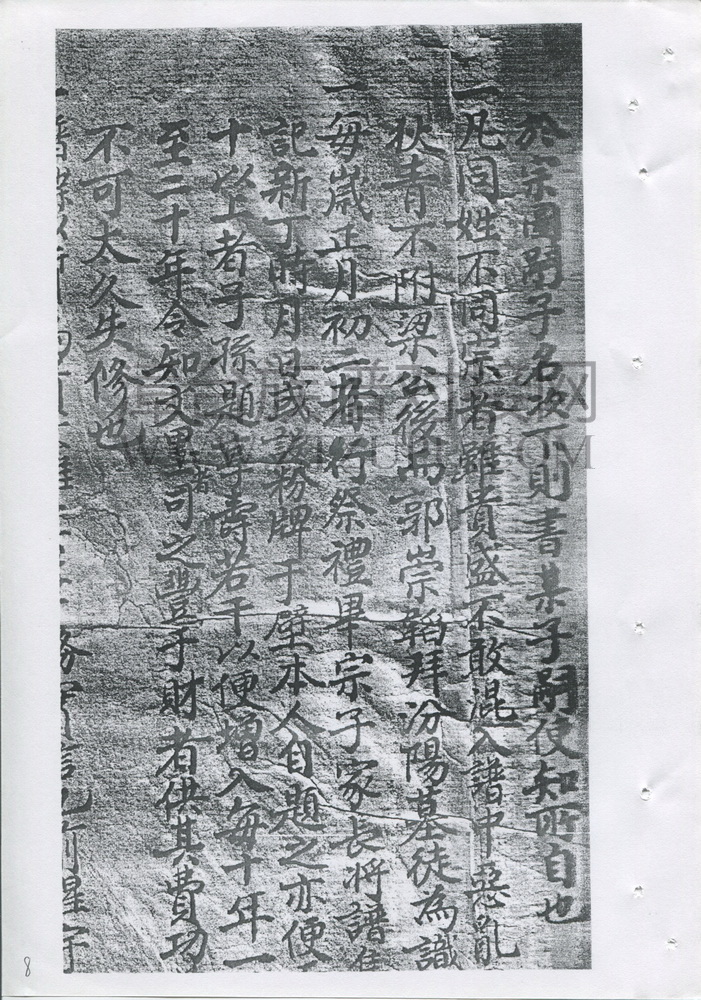 於宗圖嗣子名次下則書某子嗣使知所自也
一凡同姓不同宗者雖貴盛不敢混入譜中惡亂
狄青不附梁公後而郭崇韜拜汾陽墓徒為識
一每歲正月初二務行祭禮畢宗子家長將譜
記新丁時月日或設粉牌于壁本人自題之亦便
十以上者子孫題享壽若干以便增入每十年一
至二十年令知文墨者司之豐于財者供其費功
不可太久失修也
一譜
8